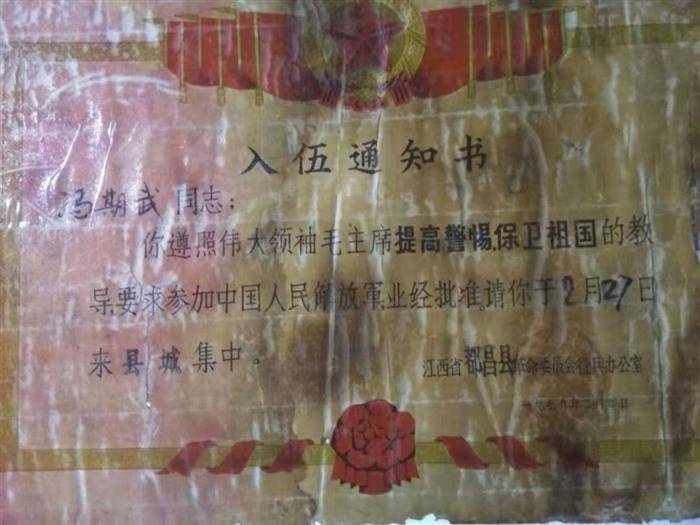 入伍通知书
冯期武 同志：
你遵照伟大领袖毛主席提高警惕,保卫祖国的教
导,要求参加中国人民解放軍,业经批准。请你于2月27日
来县城集中。
江西省都昌县革命委员会征兵办公室
一九 八年二月 日